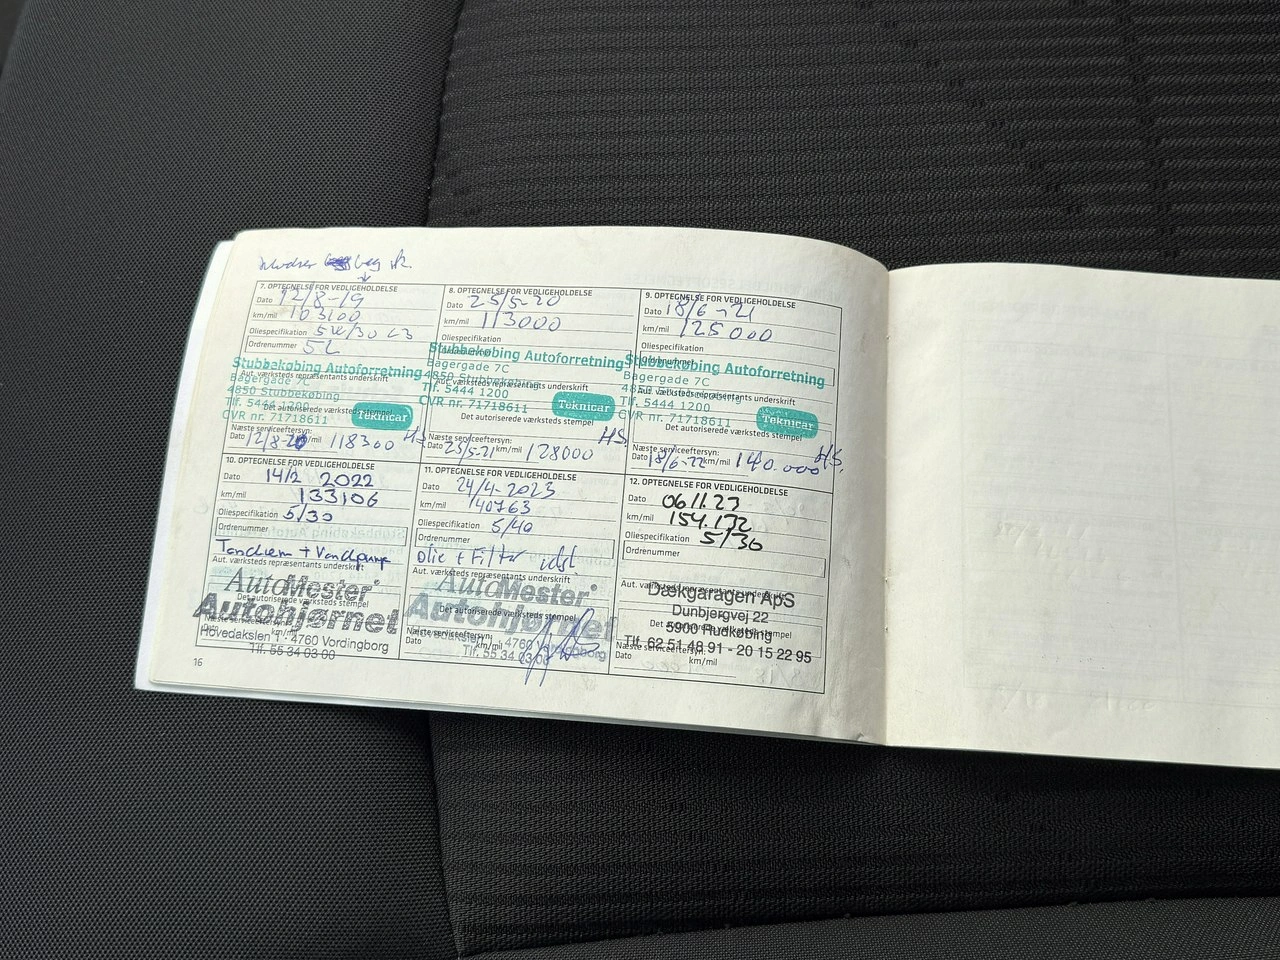 7. OPTEGNELSE FOR VEDLIGEHOLDELSE
Dato 12/8-19
km/mil 103100
Oliespecifikation 5W/30 C3
Ordrenummer 5L
Stubbekøbing Autoforretning
Bagergade 7C
Aut. værksteds repræsentants underskrift
4850 Stubbekøbing
Tlf. 5444 1200
Det autoriserede værksteds stempel
CVR nr. 71718611
Teknicar
Næste serviceeftersyn:
Dato 12/8-20 km/mil 118300 HS
8. OPTEGNELSE FOR VEDLIGEHOLDELSE
Dato 25/5-20
km/mil 113000
Oliespecifikation
Ordrenummer
Stubbekøbing Autoforretning
Bagergade 7C
Aut. værksteds repræsentants underskrift
4850 Stubbekøbing
Tlf. 5444 1200
CVR nr. 71718611
Teknicar
Det autoriserede værksteds stempel
Næste serviceeftersyn:
Dato 25/5-21 km/mil 128000 HS
9. OPTEGNELSE FOR VEDLIGEHOLDELSE
Dato 18/6-21
km/mil 125000
Oliespecifikation
Ordrenummer
Stubbekøbing Autoforretning
Bagergade 7C
Aut. værksteds repræsentants underskrift
4850 Stubbekøbing
Tlf. 5444 1200
CVR nr. 71718611
Teknicar
Det autoriserede værksteds stempel
Næste serviceeftersyn:
Dato 18/6-22 km/mil 140.000 HS.
10. OPTEGNELSE FOR VEDLIGEHOLDELSE
Dato 14/2 2022
km/mil 133106
Oliespecifikation 5/30
Ordrenummer
Tandrem + Vandpumpe
Aut. værksteds repræsentants underskrift
AutoMester
Det autoriserede værksteds stempel
Autohjørnet
Næste serviceeftersyn:
Dato km/mil
Hovedakslen 1 · 4760 Vordingborg
Tlf. 55 34 03 00
11. OPTEGNELSE FOR VEDLIGEHOLDELSE
Dato 24/4-2023
km/mil 140763
Oliespecifikation 5/40
Ordrenummer
Olie + Filter
Aut. værksteds repræsentants underskrift
AutoMester
Det autoriserede værksteds stempel
Autohjørnet
Næste serviceeftersyn:
Dato km/mil
4760 Vordingborg
Tlf. 55 34 03 00
12. OPTEGNELSE FOR VEDLIGEHOLDELSE
Dato 06.11.23
km/mil 154.172
Oliespecifikation 5/30
Ordrenummer
Aut. værksteds repræsentants underskrift
Dækgaragen ApS
Dunbjergvej 22
Det autoriserede værksteds stempel
5900 Rudkøbing
Tlf. 62 51 48 91 - 20 15 22 95
Næste serviceeftersyn:
Dato km/mil
16